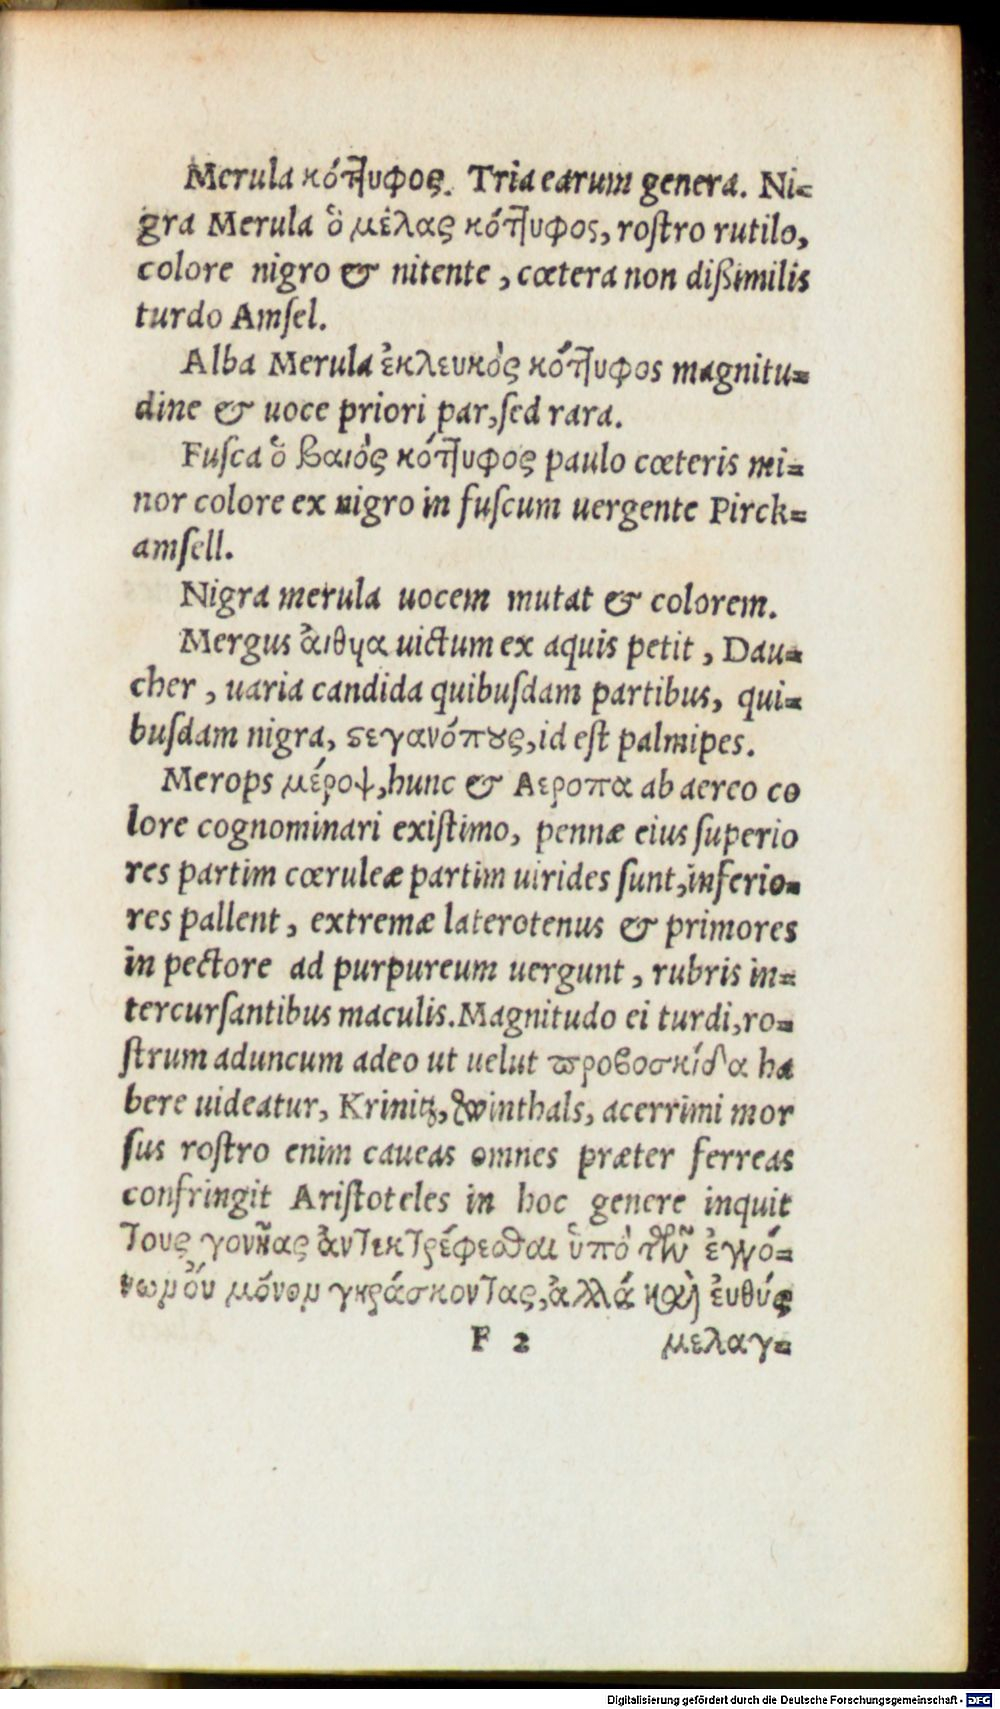 Merula κότ]υφος. Tria earum genera. Ni=
gra Merula ὃ μέλας κότ]υφος, roſtro rutilo,
colore nigro & nitente, cœtera non dißimilis
turdo Amſel.
Alba Merula ἐκλευκὸς κότ]υφοs magnitu=
dine & uoce priori par, ſed rara.
Fuſca ὃ βαιὸς κότ]υφος paulo cœteris mi=
nor colore ex nigro in fuſcum uergente Pirck=
amſell.
Nigra merula uocem mutat & colorem.
Mergus ἄιθυα uictum ex aquis petit, Dau=
cher, uaria candida quibuſdam partibus, qui=
buſdam nigra, ϛεγανόπȣς, id eſt palmipes.
Merops μέροψ, hunc & Αεροπα ab aereo co
lore cognominari exiſtimo, pennæ eius ſuperio
res partim cœruleæ partim uirides ſunt, inferio=
res pallent, extremæ laterotenus & primores
in pectore ad purpureum uergunt, rubris in=
tercurſantibus maculis. Magnitudo ei turdi, ro=
ſtrum aduncum adeo ut uelut ϖροβοσκίδα ha
bere uideatur, Krinitz, Gwinthals, acerrimi mor
ſus roſtro enim caueas omnes præter ferreas
confringit Ariſtoteles in hoc genere inquit
τους γονῆας ἀντεκτρέφεσθαι ὑπὸ τῶν ἐγγό=
νωμ ὀύ μόνομ γηράσκοντας, ἀλλά καὶ ἐυθύς
F 2 μελαγ=
Digitalisierung gefördert durch die Deutsche Forschungsgemeinschaft - DFG